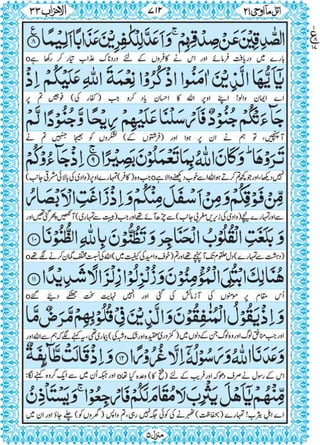 اتل ما اوحی ٢١
٧١٢
الاحزاب ٣٣
الصّٰدِقِیْنَ عَنْ صِدْقِهِمْ ۚ وَ اَعَدَّ لِلْكٰفِرِیْنَ عَذَابًا اَلِیْمًا ۠﴿۸﴾
بارے میں دریافت فرمائے اور اس نے کافروں کے لئے دردناک عذاب تیار کر رکھا ہے
یٰۤاَیُّهَا الَّذِیْنَ اٰمَنُوا اذْكُرُوْا نِعْمَةَ اللّٰهِ عَلَیْكُمْ اِذْ
اے ایمان والو! اپنے اوپر اللہ کا احسان یاد کرو جب (کفار کی) فوجیں تم پر
جَآءَتْكُمْ جُنُوْدٌ فَاَرْسَلْنَا عَلَیْهِمْ رِیْحًا وَّ جُنُوْدًا لَّمْ
آ پہنچیں، تو ہم نے ان پر ہوا اور (فرشتوں کے) لشکروں کو بھیجا جنہیں تم نے
تَرَوْهَا ؕ وَ كَانَ اللّٰهُ بِمَا تَعْمَلُوْنَ بَصِیْرًا ۚ﴿۹﴾ اِذْ جَآءُوْكُمْ
نہیں دیکھا، اور جو کچھ تم کرتے ہو اللہ اسے خوب دیکھنے والا ہے جب وہ (کافر) تمہارے اوپر (وادی کی بالائی مشرقی جانب)
مِّنْ فَوْقِكُمْ وَ مِنْ اَسْفَلَ مِنْكُمْ وَ اِذْ زَاغَتِ الْاَبْصَارُ
سے اور تمہارے نیچے (وادی کی زیریں مغربی جانب) سے چڑھ آئے تھے اور جب (ہیبت سے تمہاری) آنکھیں پھر گئی تھیں اور
وَ بَلَغَتِ الْقُلُوْبُ الْحَنَاجِرَ وَ تَظُنُّوْنَ بِاللّٰهِ الظُّنُوْنَا ﴿۱۰﴾
(دہشت سے تمہارے) دل حلقوم تک آ پہنچے تھے اور تم (خوف و امید کی کیفیت میں) اللہ کی نسبت مختلف گمان کرنے لگے تھے
هُنَالِكَ ابْتُلِیَ الْمُؤْمِنُوْنَ وَ زُلْزِلُوْا زِلْزَالًا شَدِیْدًا ﴿۱۱﴾
اُس مقام پر مومنوں کی آزمائش کی گئی اور انہیں نہایت سخت جھٹکے دیئے گئے
وَ اِذْ یَقُوْلُ الْمُنٰفِقُوْنَ وَ الَّذِیْنَ فِیْ قُلُوْبِهِمْ مَّرَضٌ مَّا
اور جب منافق لوگ اور وہ لوگ جن کے دلوں میں (کمزوریِ عقیدہ اور شک و شبہ کی) بیماری تھی، یہ کہنے لگے کہ ہم سے اللہ اور
وَعَدَنَا اللّٰهُ وَ رَسُوْلُهٗۤ اِلَّا غُرُوْرًا ﴿۱۲﴾ وَ اِذْ قَالَتْ طَّآئِفَةٌ
اس کے رسول نے صرف دھوکہ اور فریب کے لئے (فتح کا) وعدہ کیا تھا اور جبکہ اُن میں سے ایک گروہ کہنے لگا:
مِّنْهُمْ یٰۤاَهْلَ یَثْرِبَ لَا مُقَامَ لَكُمْ فَارْجِعُوْا ۚ وَ یَسْتَاْذِنُ
اے اہلِ یثرب! تمہارے (بحفاظت) ٹھہرنے کی کوئی جگہ نہیں رہی، تم واپس (گھروں کو) چلے جاؤ اور ان میں
منزل ٥